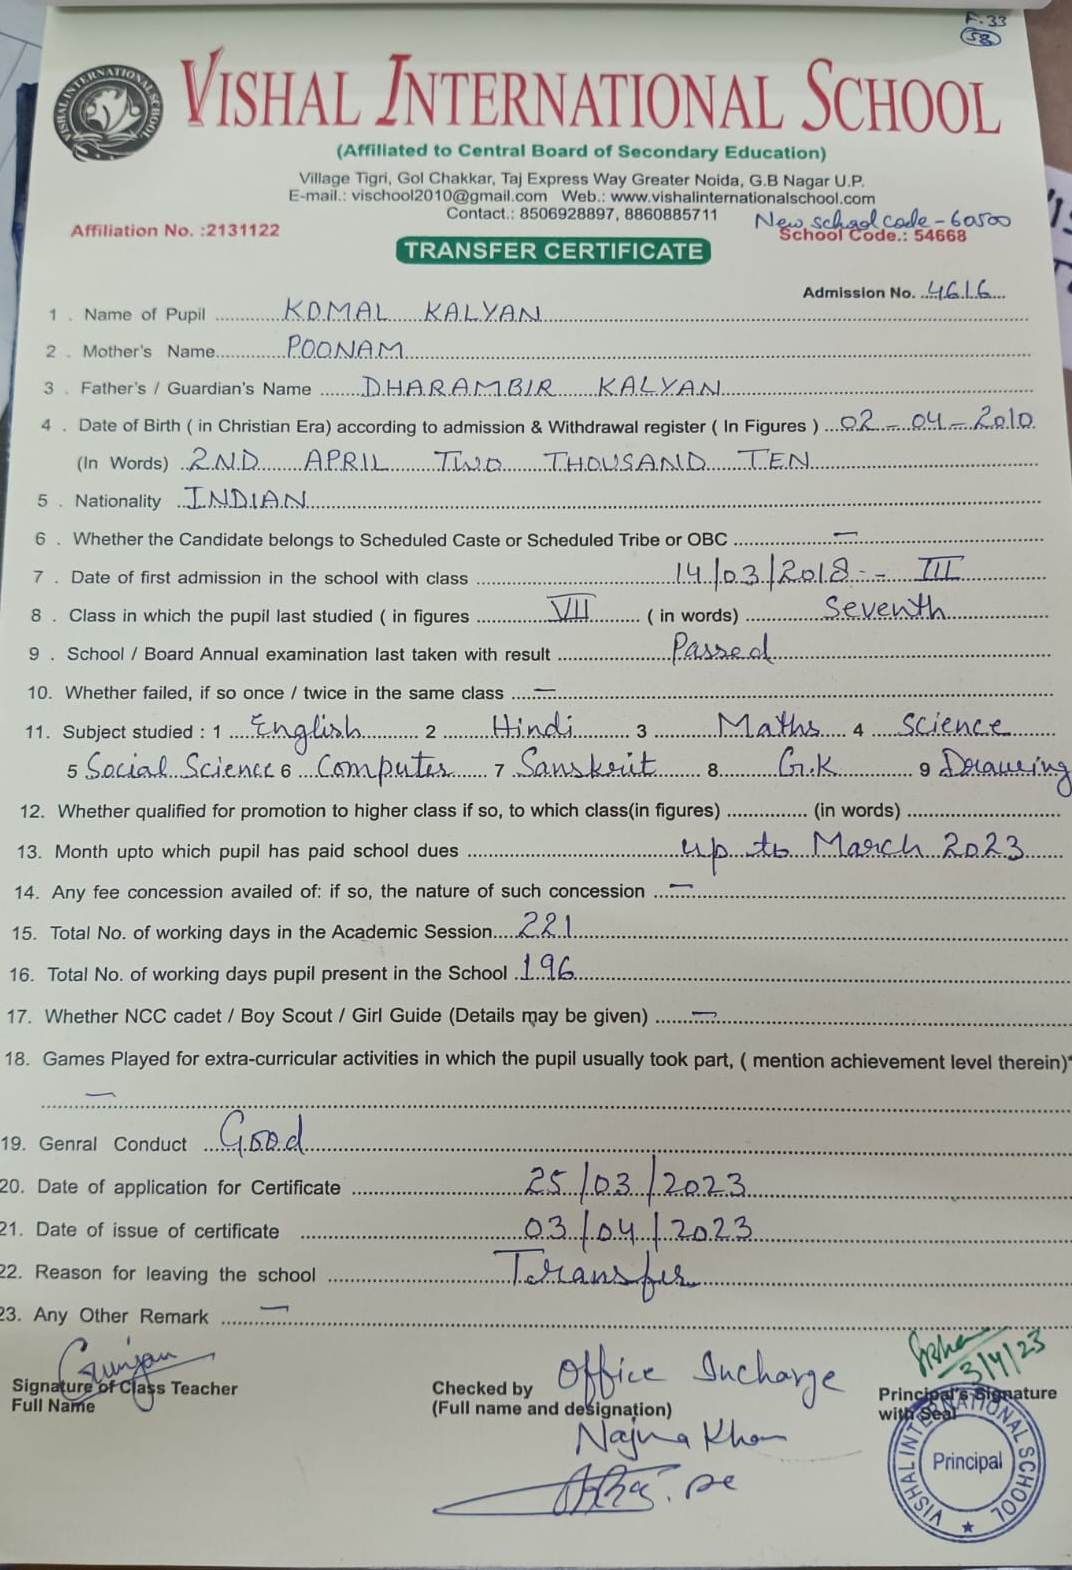 F.33
58
VISHAL INTERNATIONAL SCHOOL
VISHAL INTERNATIONAL SCHOOL
(Affiliated to Central Board of Secondary Education)
Village Tigri, Gol Chakkar, Taj Express Way Greater Noida, G.B Nagar U.P.
E-mail.: vischool2010@gmail.com Web.: www.vishalinternationalschool.com
Contact.: 8506928897, 8860885711
New school code - 60500
Affiliation No. :2131122 School Code.: 54668
TRANSFER CERTIFICATE
Admission No. 4616
1 . Name of Pupil KOMAL KALYAN
2 . Mother's Name POONAM
3 . Father's / Guardian's Name DHARAMBIR KALYAN
4 . Date of Birth ( in Christian Era) according to admission & Withdrawal register ( In Figures ) 02 - 04 - 2010
(In Words) 2ND APRIL TWO THOUSAND TEN
5 . Nationality INDIAN
6 . Whether the Candidate belongs to Scheduled Caste or Scheduled Tribe or OBC —
7 . Date of first admission in the school with class 14/03/2018 - - III
8 . Class in which the pupil last studied ( in figures VII ( in words) Seventh
9 . School / Board Annual examination last taken with result Passed
10. Whether failed, if so once / twice in the same class —
11. Subject studied : 1 English 2 Hindi 3 Maths 4 Science
5 Social Science 6 Computer 7 Sanskrit 8. G.K 9 Drawing
12. Whether qualified for promotion to higher class if so, to which class(in figures) (in words)
13. Month upto which pupil has paid school dues up to March 2023
14. Any fee concession availed of: if so, the nature of such concession —
15. Total No. of working days in the Academic Session 221
16. Total No. of working days pupil present in the School 196
17. Whether NCC cadet / Boy Scout / Girl Guide (Details may be given) —
18. Games Played for extra-curricular activities in which the pupil usually took part, ( mention achievement level therein)*
—
19. Genral Conduct Good
20. Date of application for Certificate 25/03/2023
21. Date of issue of certificate 03/04/2023
22. Reason for leaving the school Transfer
23. Any Other Remark —
Gunjan
3/4/23
Signature of Class Teacher
Full Name
Checked by Office Incharge
(Full name and designation)
Najma Khan
Principal's Signature
with Seal
VISHAL INTERNATIONAL SCHOOL
Principal